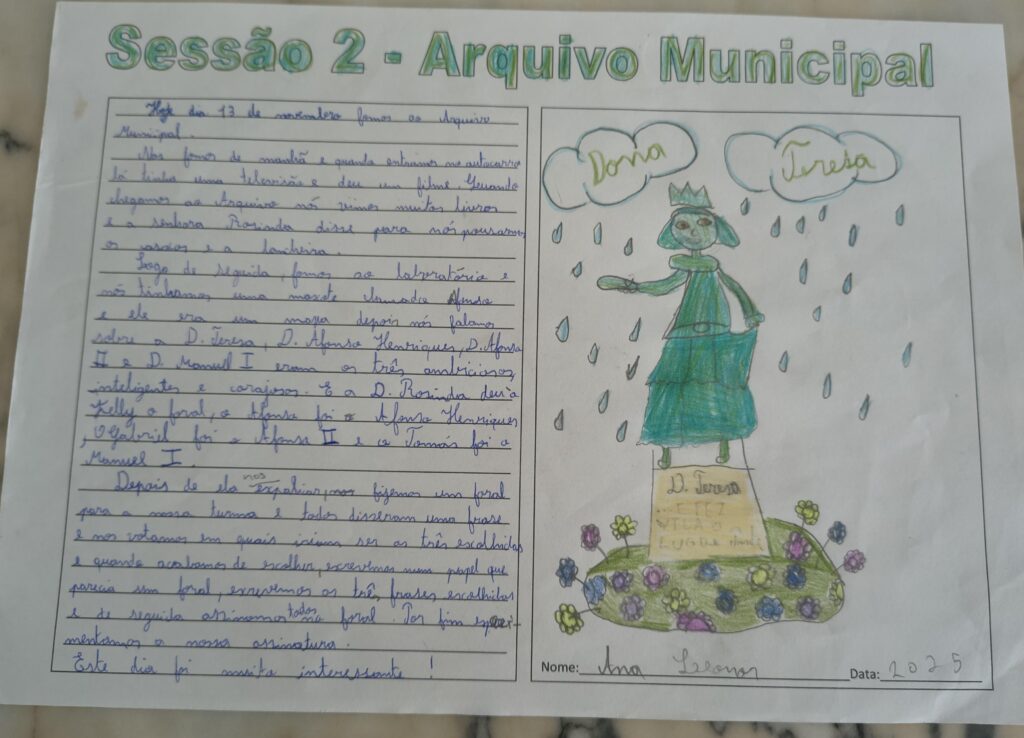 Sessão 2 - Arquivo Municipal
Hoje dia 13 de novembro fomos ao Arquivo
Municipal.
Nós fomos de manhã e quando entramos no autocarro
lá tinha uma televisão e deu um filme. Quando
chegamos ao Arquivo nós vimos muitos livros
e a senhora Rosinda disse para nós pousarmos
os casacos e a lancheira.
Logo de seguida, fomos ao laboratório e
nós tinhamos uma maxote chamado Afonso
e ele era um mopa depois nós falamos
sobre a D. Teresa, D. Afonso Henriques, D. Afonso
II e D. Manuel I eram os três ambiciosos,
inteligentes e corajosos. E a D. Rosinda deu à
Kelly o foral, o Afonso foi o Afonso Henriques
, O Gabriel foi o Afonso II e o Tomás foi o
Manuel I.
Depois de ela nos expaliar, nos fizemos um foral
para a nossa turma e todos disseram uma frase
e nos votamos em quais iriam ser as três escolhidas
e quando acabamos de escolher, escrevemos num papel que
parecia um foral, escrevemos as três frases escolhidas
e de seguida assinamos todos no foral. Por fim experi-
mentamos a nossa assinatura.
Este dia foi muito interessante !
Dona
Teresa
D. Teresa
E FEZ
VILA O
LUGAR
Nome: Ana Leonor
Data: 2025